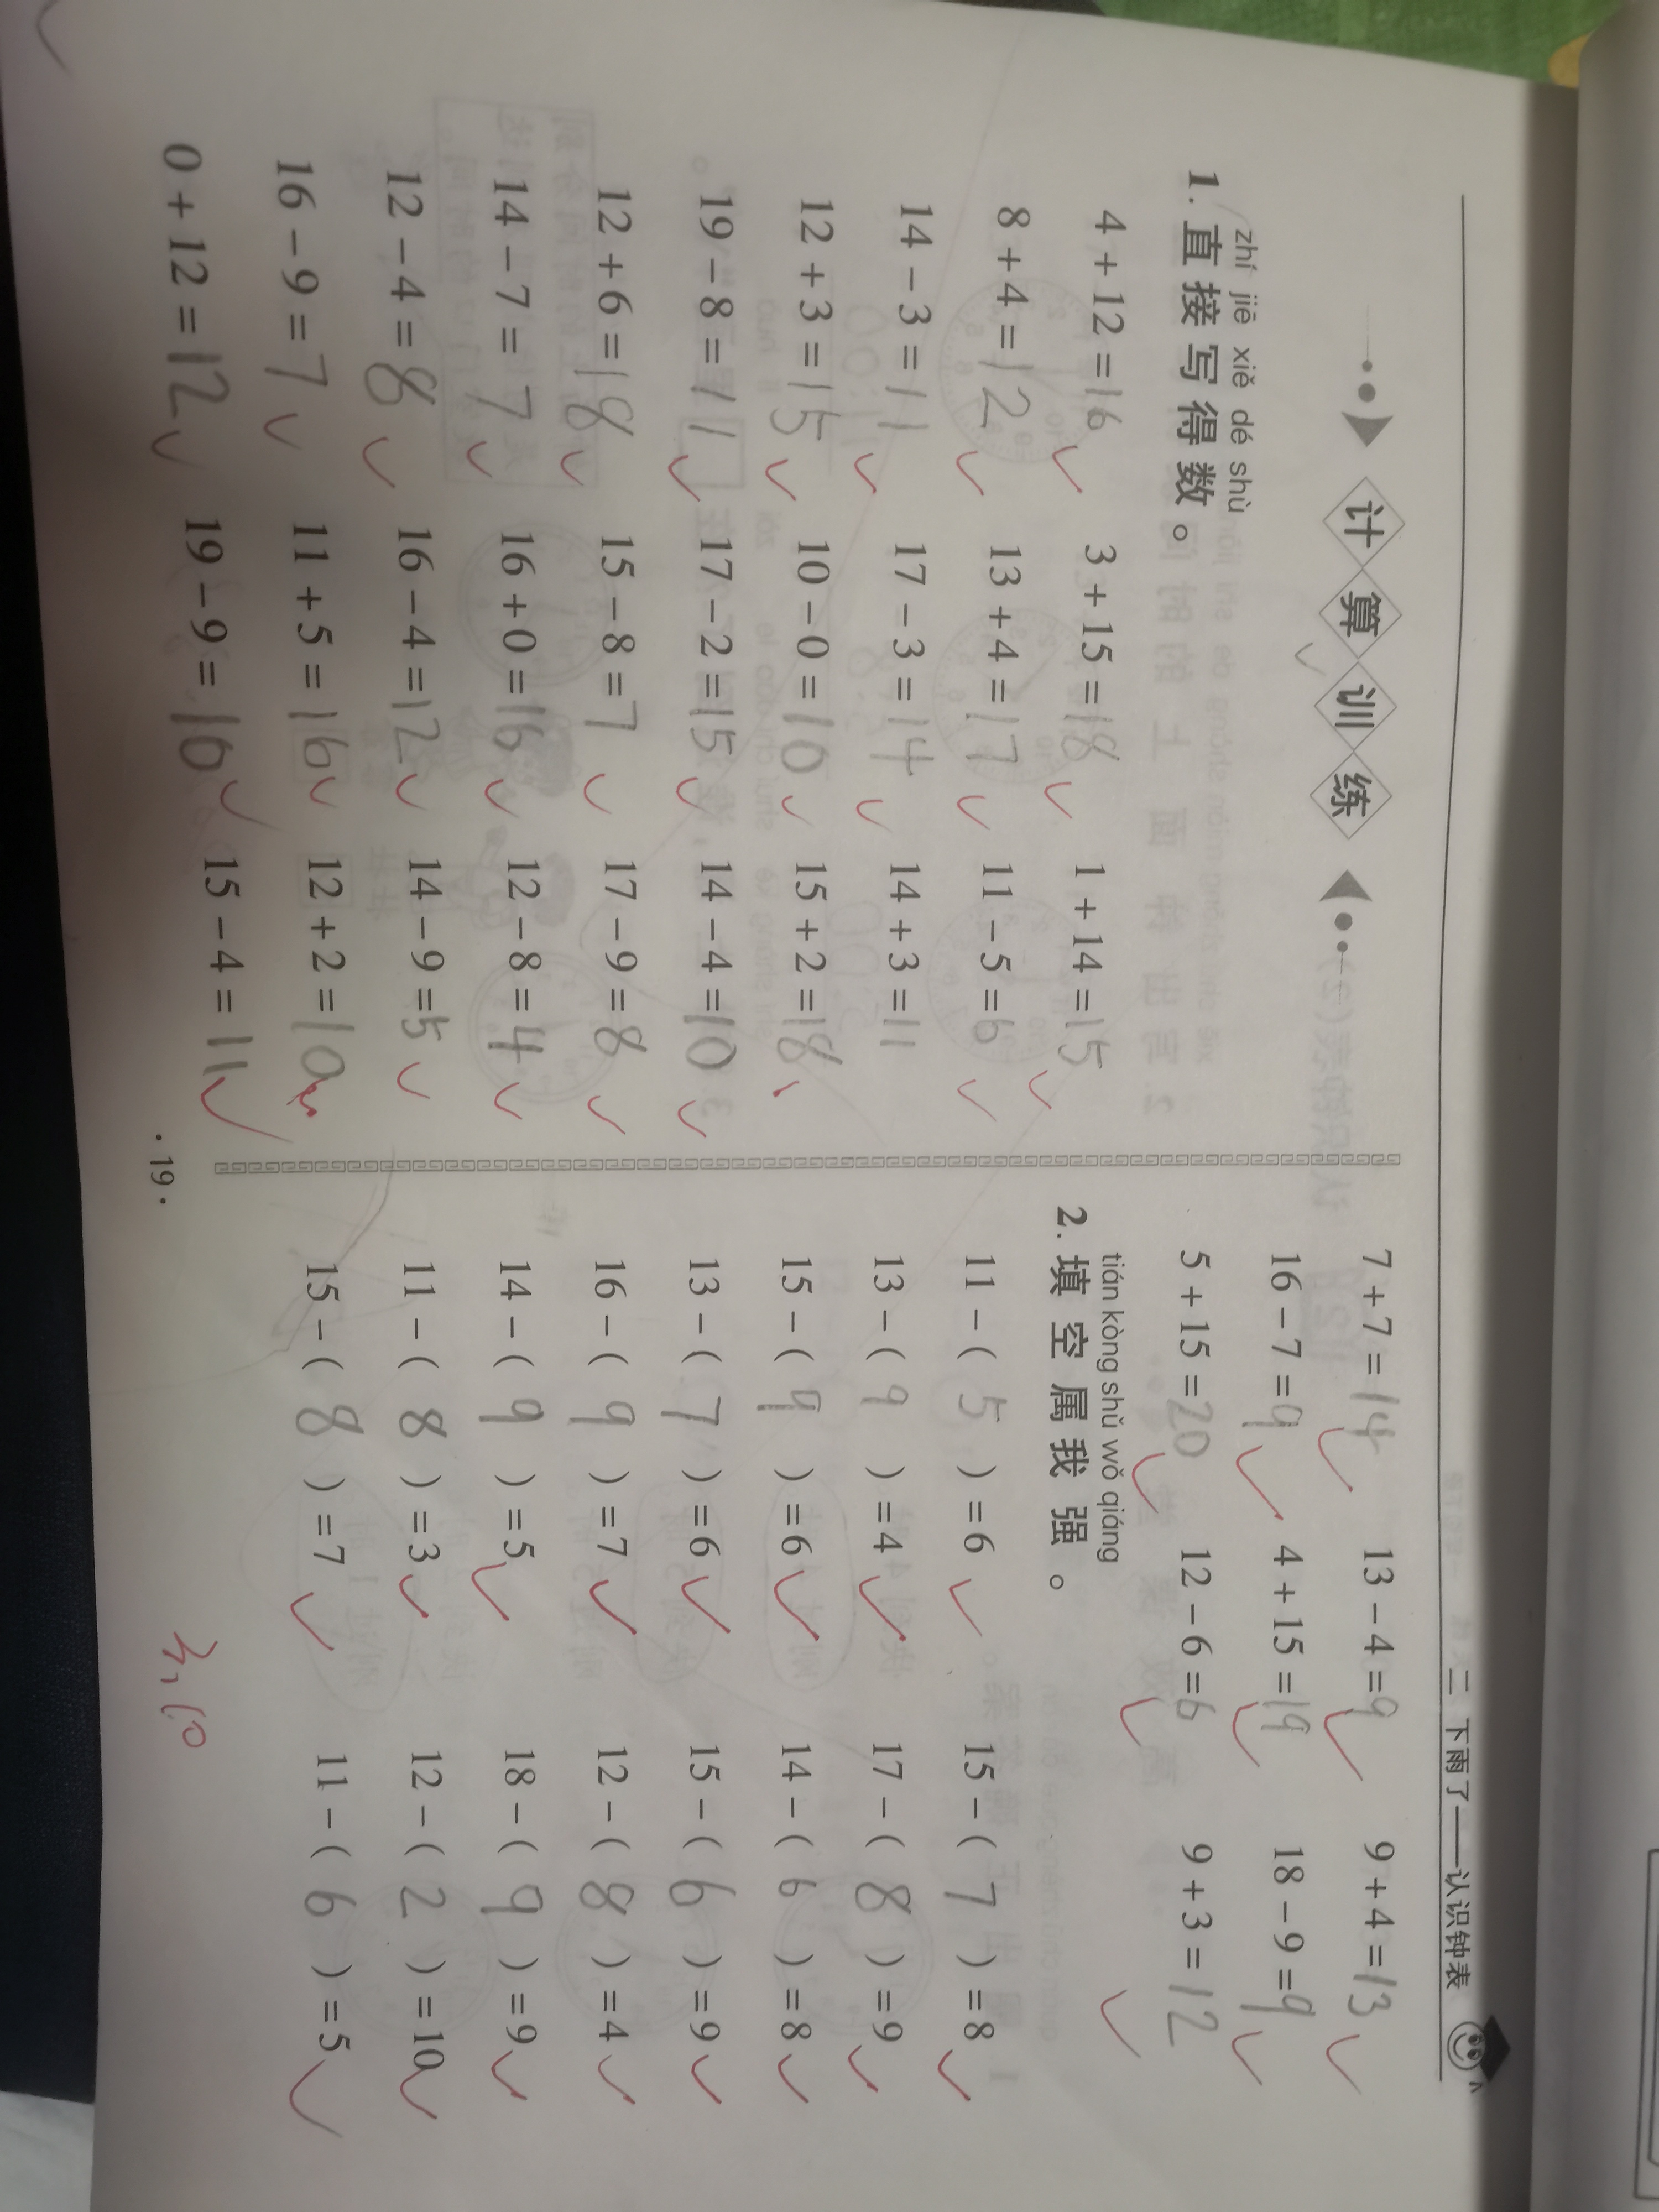 二 下雨了——认识钟表
计算训练
zhí jiē xiě dé shù
1. 直接写得数。
4+12=16 3+15=18 1+14=15
8+4=12 13+4=17 11-5=6
14-3=11 17-3=14 14+3=11
12+3=15 10-0=10 15+2=18
19-8=11 17-2=15 14-4=10
12+6=18 15-8=7 17-9=8
14-7=7 16+0=16 12-8=4
12-4=8 16-4=12 14-9=5
16-9=7 11+5=16 12+2=10
0+12=12 19-9=10 15-4=11
7+7=14 13-4=9 9+4=13
16-7=9 4+15=19 18-9=9
5+15=20 12-6=6 9+3=12
tián kòng shǔ wǒ qiáng
2. 填空属我强。
11-(5)=6 15-(7)=8
13-(9)=4 17-(8)=9
15-(9)=6 14-(6)=8
13-(7)=6 15-(6)=9
16-(9)=7 12-(8)=4
14-(9)=5 18-(9)=9
11-(8)=3 12-(2)=10
15-(8)=7 11-(6)=5
3,10
·19·